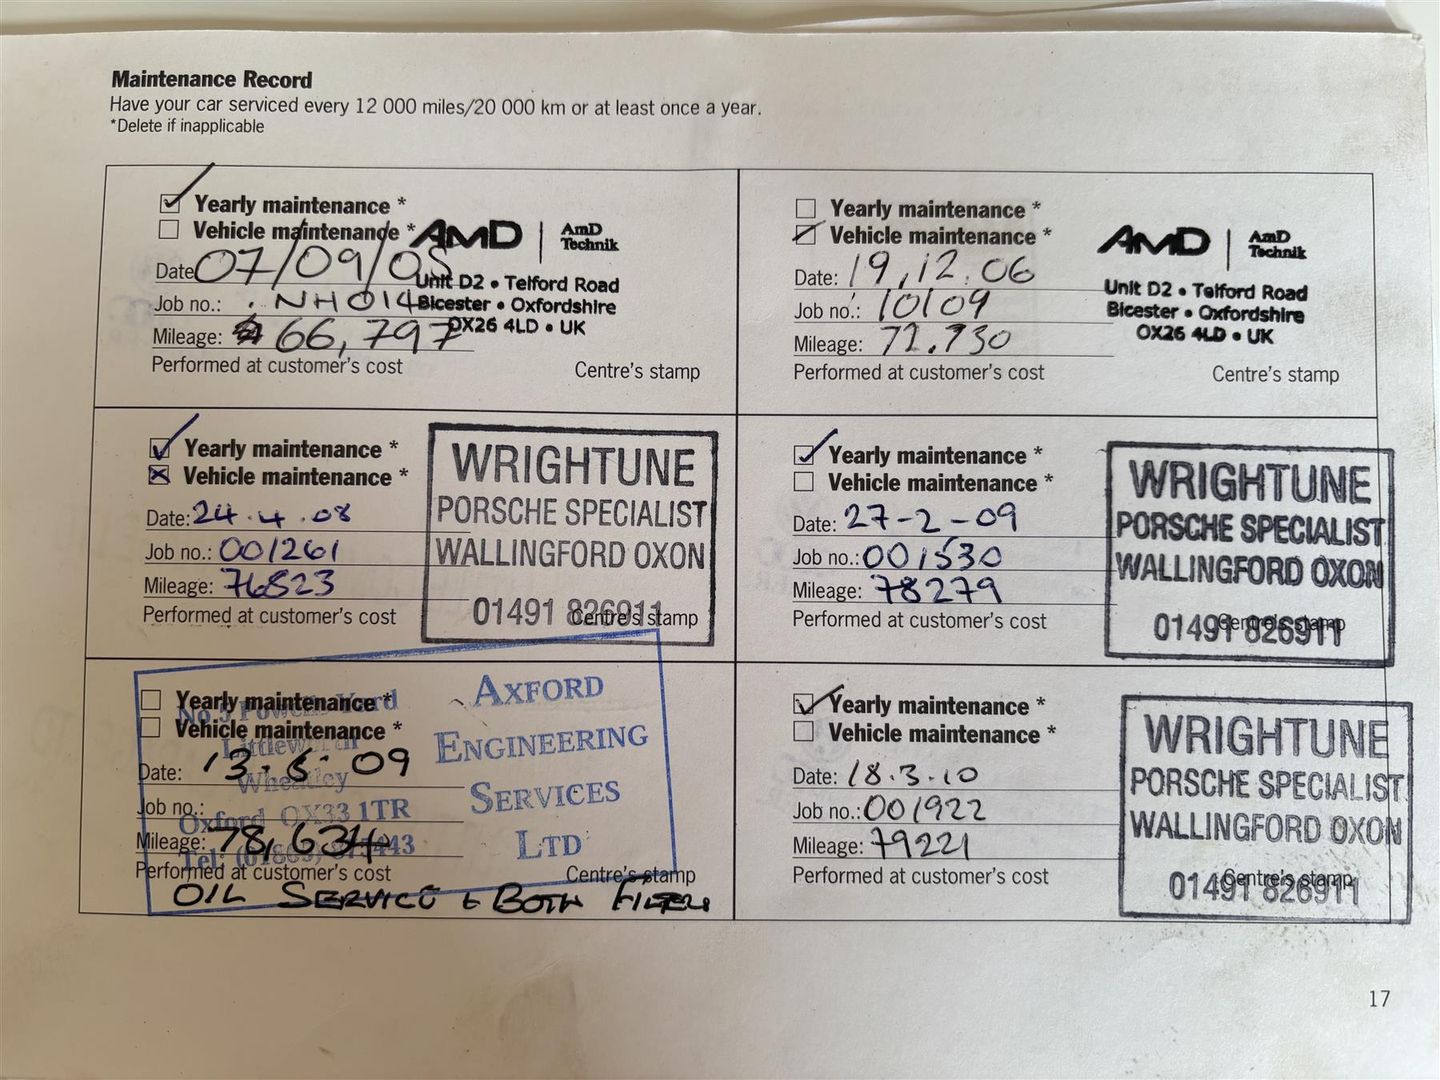 Maintenance Record
Have your car serviced every 12 000 miles/20 000 km or at least once a year.
*Delete if inapplicable
Yearly maintenance *
Vehicle maintenance *
Date: 07/09/05
Job no.: NH014
Mileage: 66,797
Performed at customer's cost
AMD | AmD Technik
Unit D2 • Telford Road
Bicester • Oxfordshire
OX26 4LD • UK
Centre's stamp
Yearly maintenance *
Vehicle maintenance *
Date: 19.12.06
Job no.: 10109
Mileage: 72.730
Performed at customer's cost
AMD | AmD Technik
Unit D2 • Telford Road
Bicester • Oxfordshire
OX26 4LD • UK
Centre's stamp
Yearly maintenance *
Vehicle maintenance *
Date: 24.4.08
Job no.: 001261
Mileage: 76823
Performed at customer's cost
WRIGHTUNE
PORSCHE SPECIALIST
WALLINGFORD OXON
01491 826911
Centre's stamp
Yearly maintenance *
Vehicle maintenance *
Date: 27-2-09
Job no.: 001530
Mileage: 78279
Performed at customer's cost
WRIGHTUNE
PORSCHE SPECIALIST
WALLINGFORD OXON
01491 826911
Centre's stamp
Yearly maintenance *
Vehicle maintenance *
Date: 13. 09
Job no.:
Mileage: 78,634
Performed at customer's cost
No.5 Yard
Wheatley
Oxford OX33 1TR
Tel:
AXFORD
ENGINEERING
SERVICES
LTD
Centre's stamp
OIL SERVICE & BOTH FILTERS
Yearly maintenance *
Vehicle maintenance *
Date: 18.3.10
Job no.: 001922
Mileage: 79221
Performed at customer's cost
WRIGHTUNE
PORSCHE SPECIALIST
WALLINGFORD OXON
01491 826911
Centre's stamp
17